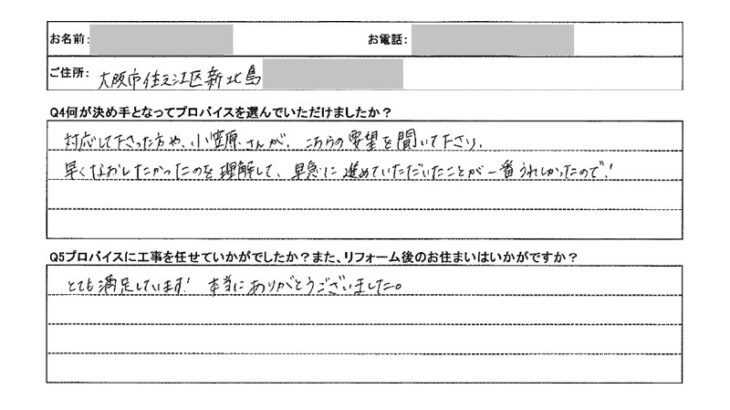 お名前: お電話:
ご住所: 大阪市住之江区新北島
Q4何が決め手となってプロバイスを選んでいただけましたか？
対応して下さった方や、小笠原さんが、こちらの要望を聞いて下さり、
早くなおしたかったのを理解して、早急に進めていただいたことが一番うれしかったので！
Q5プロバイスに工事を任せていかがでしたか？また、リフォーム後のお住まいはいかがですか？
とても満足しています！ 本当にありがとうございました。